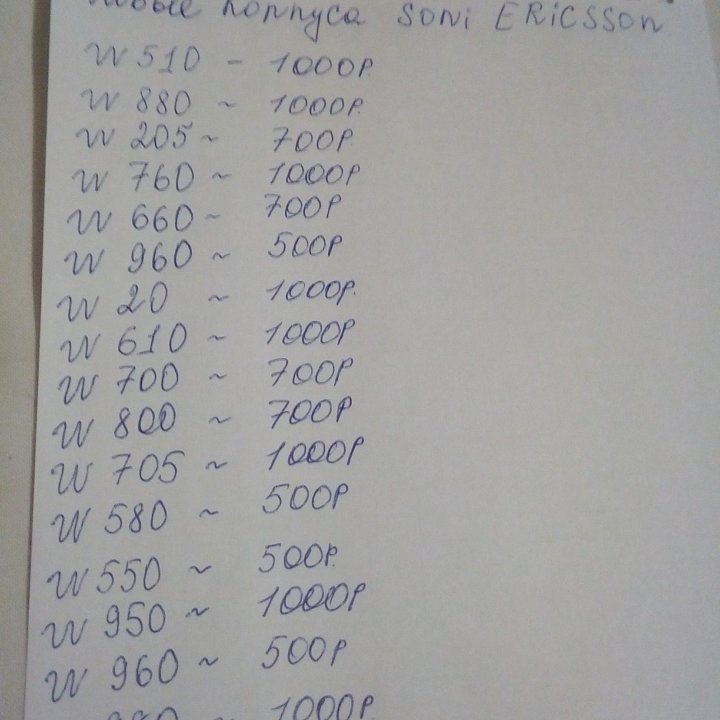 корпуса SONi ERiCSSON
W 510 - 1000Р
W 880 ~ 1000Р
W 205 ~ 700Р
W 760 ~ 1000Р
W 660 ~ 700Р
W 960 ~ 500Р
W 20 ~ 1000Р.
W 610 ~ 1000Р
W 700 ~ 700Р
W 800 ~ 700Р
W 705 ~ 1000Р
W 580 ~ 500Р
W 550 ~ 500Р.
W 950 ~ 1000Р
W 960 ~ 500Р
~ 1000Р